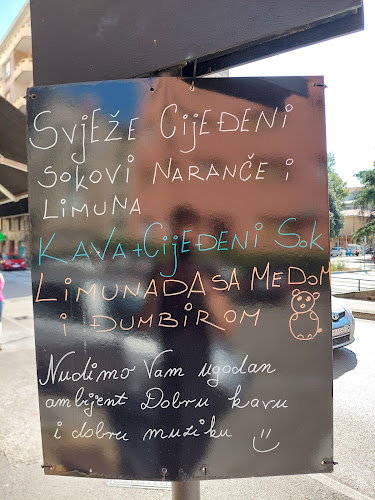 SVJEŽE CIJEĐENI
SOKOVI NARANČE i
LIMUNA
KAVA+CIJEĐENI SOK
LIMUNADA SA MEDOM
i ĐUMBIROM
Nudimo Vam ugodan
ambijent Dobru kavu
i dobru muziku